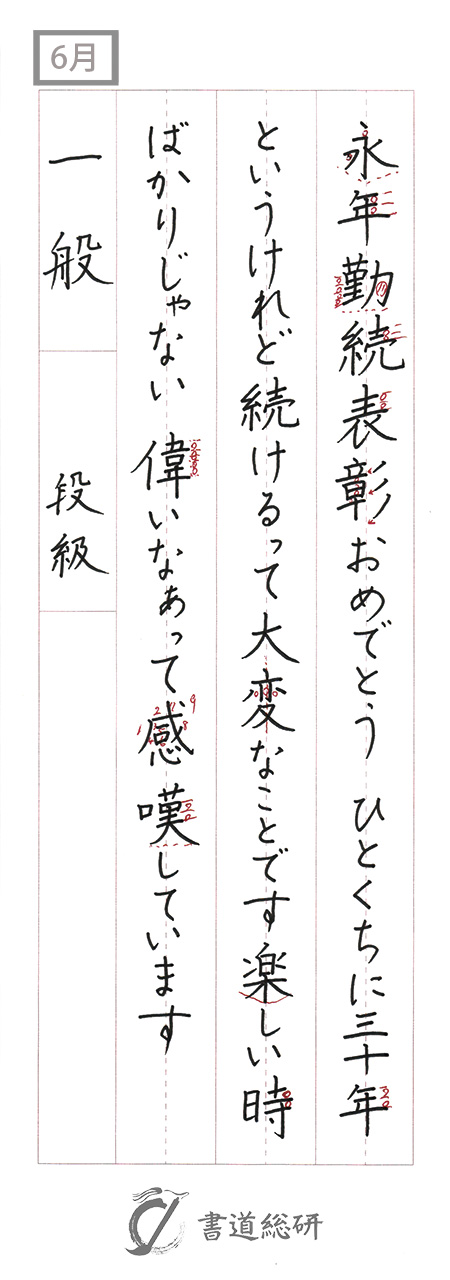 6月
永年勤続表彰おめでとう　ひとくちに三十年
というけれど続けるって大変なことです楽しい時
ばかりじゃない　偉いなぁって感嘆しています
一般　段級
書道総研